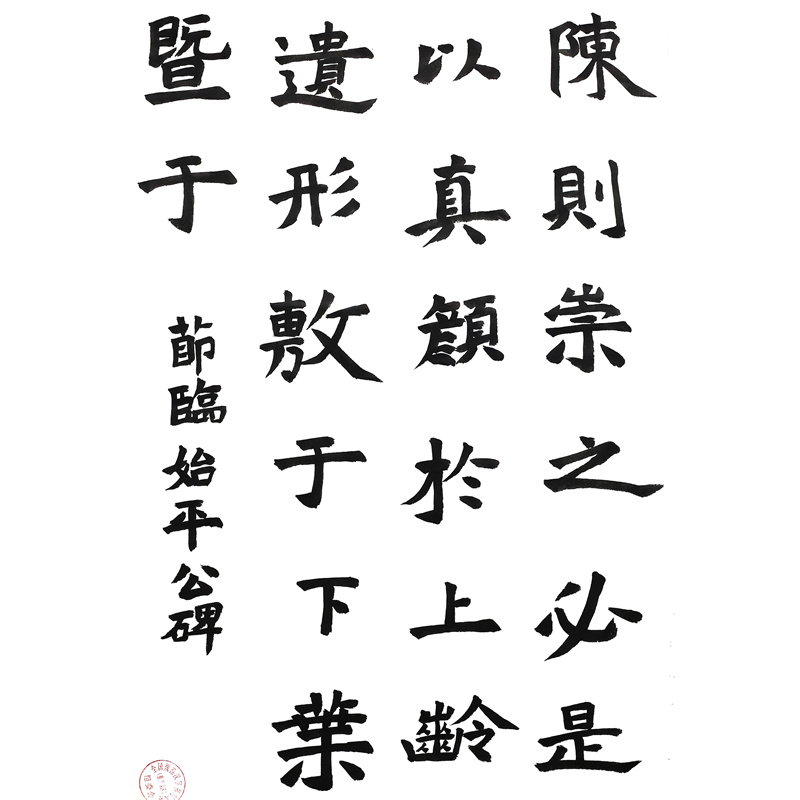 陳則崇之必是
以真顏於上齡
遺形敷于下葉
暨于
節臨始平公碑